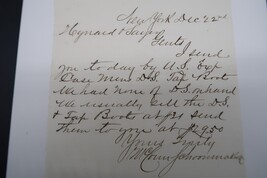 New York Dec 22d
Heynard &
Gents
I send
you to day by U.S. Exp
Case Mens D.S. Tap Boot
We had none of D.S. on hand
We usually sell the D.S.
& Tap Boots at $31 send
them to you at $29.50
Yours Truly